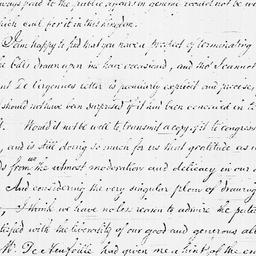 ways paid to the public affairs in general would not be w
which call for it in this Kingdom.
I am happy to find that you have a prospect of terminating
he bills drawn upon me have occasioned, and tho' I cannot
nt De Vergennes letter is peculiarly explicit and precise,
should not have been surprised if it had been conceived in te
Would it not be well to transmit a copy of it to Congress
, and is still doing so much for us that gratitude as
ds from us the utmost moderation and delicacy in our
And considering the very singular plan of drawing
, I think we have no less reason to admire the patie
tisfied with the liberality of our good and generous all
Mr. De Neufville had given me a hint of the em